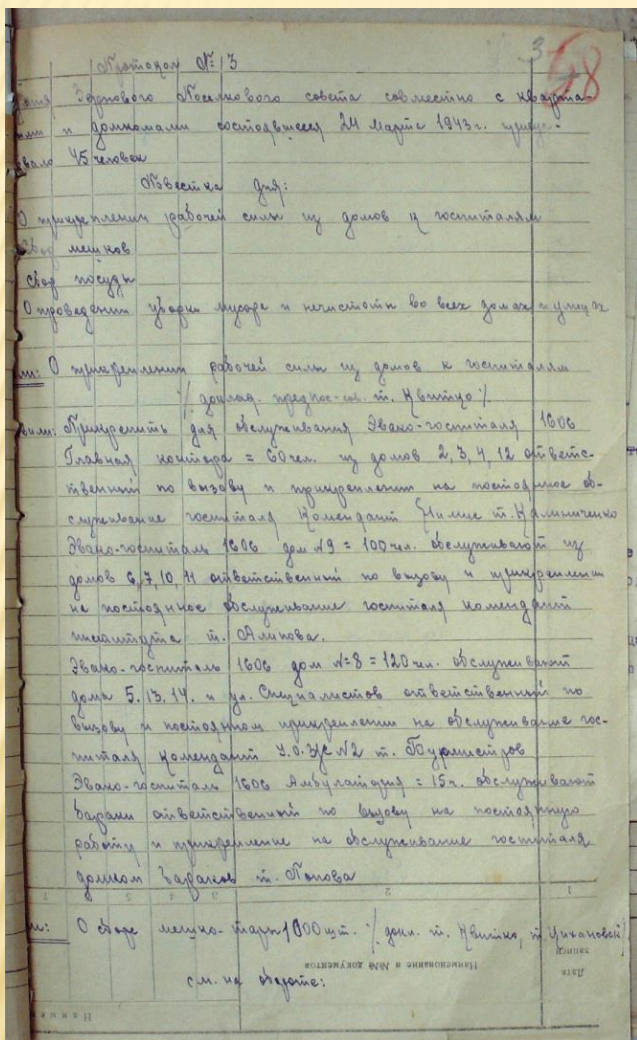 3
58
Протокол № 13
Зернового Поселкового совета совместно с кварта
ми и домкомами состоявшееся 24 марта 1943 г. присут-
вало 45 человек
Повестка дня:
О прикреплении рабочей силы из домов к госпиталям
Сбор мешков
Сбор посуды
О проведении уборки мусора и нечистоты во всех домах и улицах
ли: О прикреплении рабочей силы из домов к госпиталям
% доклад. пред пос-сов. т. Квитко %
вили: Прикрепить для обслуживания Эвако-госпиталя 1606
Главная контора = 60 чел. из домов 2, 3, 4, 12 ответс-
твенный по вызову и прикреплении на постоянное об-
служивание госпиталя Комендант т. Калиниченко
Эвако-госпиталь 1606 дом №9 = 100 чел. обслуживают из
домов 6, 7, 10, 11 ответственный по вызову и прикреплении
на постоянное обслуживание госпиталя комендант
института т. Алипова.
Эвако-госпиталь 1606 дом №=8 = 120 чел. обслуживают
дома 5. 13. 14. и ул. Специалистов ответственный по
вызову и постоянном прикреплении на обслуживание гос-
питаля комендант У.О.З/С №2 т. Бурмистров
Эвако-госпиталь 1606 Амбулатория = 15 ч. обслуживают
бараки ответственный по вызову на постоянную
работу и прикрепление на обслуживание госпиталя
домком бараков т. Попова
1 2 3 4 5
ли: О сборе мешко-тары 1000 шт. % докл. т. Квитко, т.
Дата записи
Наименование и №№ документов
см. на обороте: